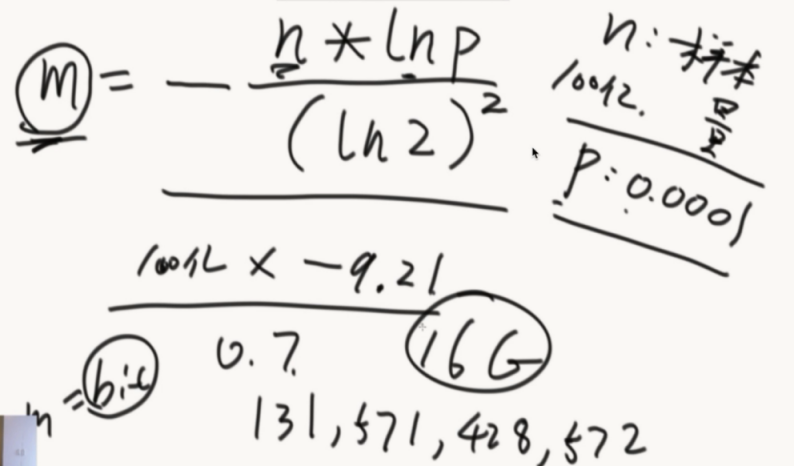 m = - n * ln p / (ln 2)²
n: 样本量
100亿.
p: 0.0001
100亿 × -9.21
0.7
16G
m = bit
131,571,428,572